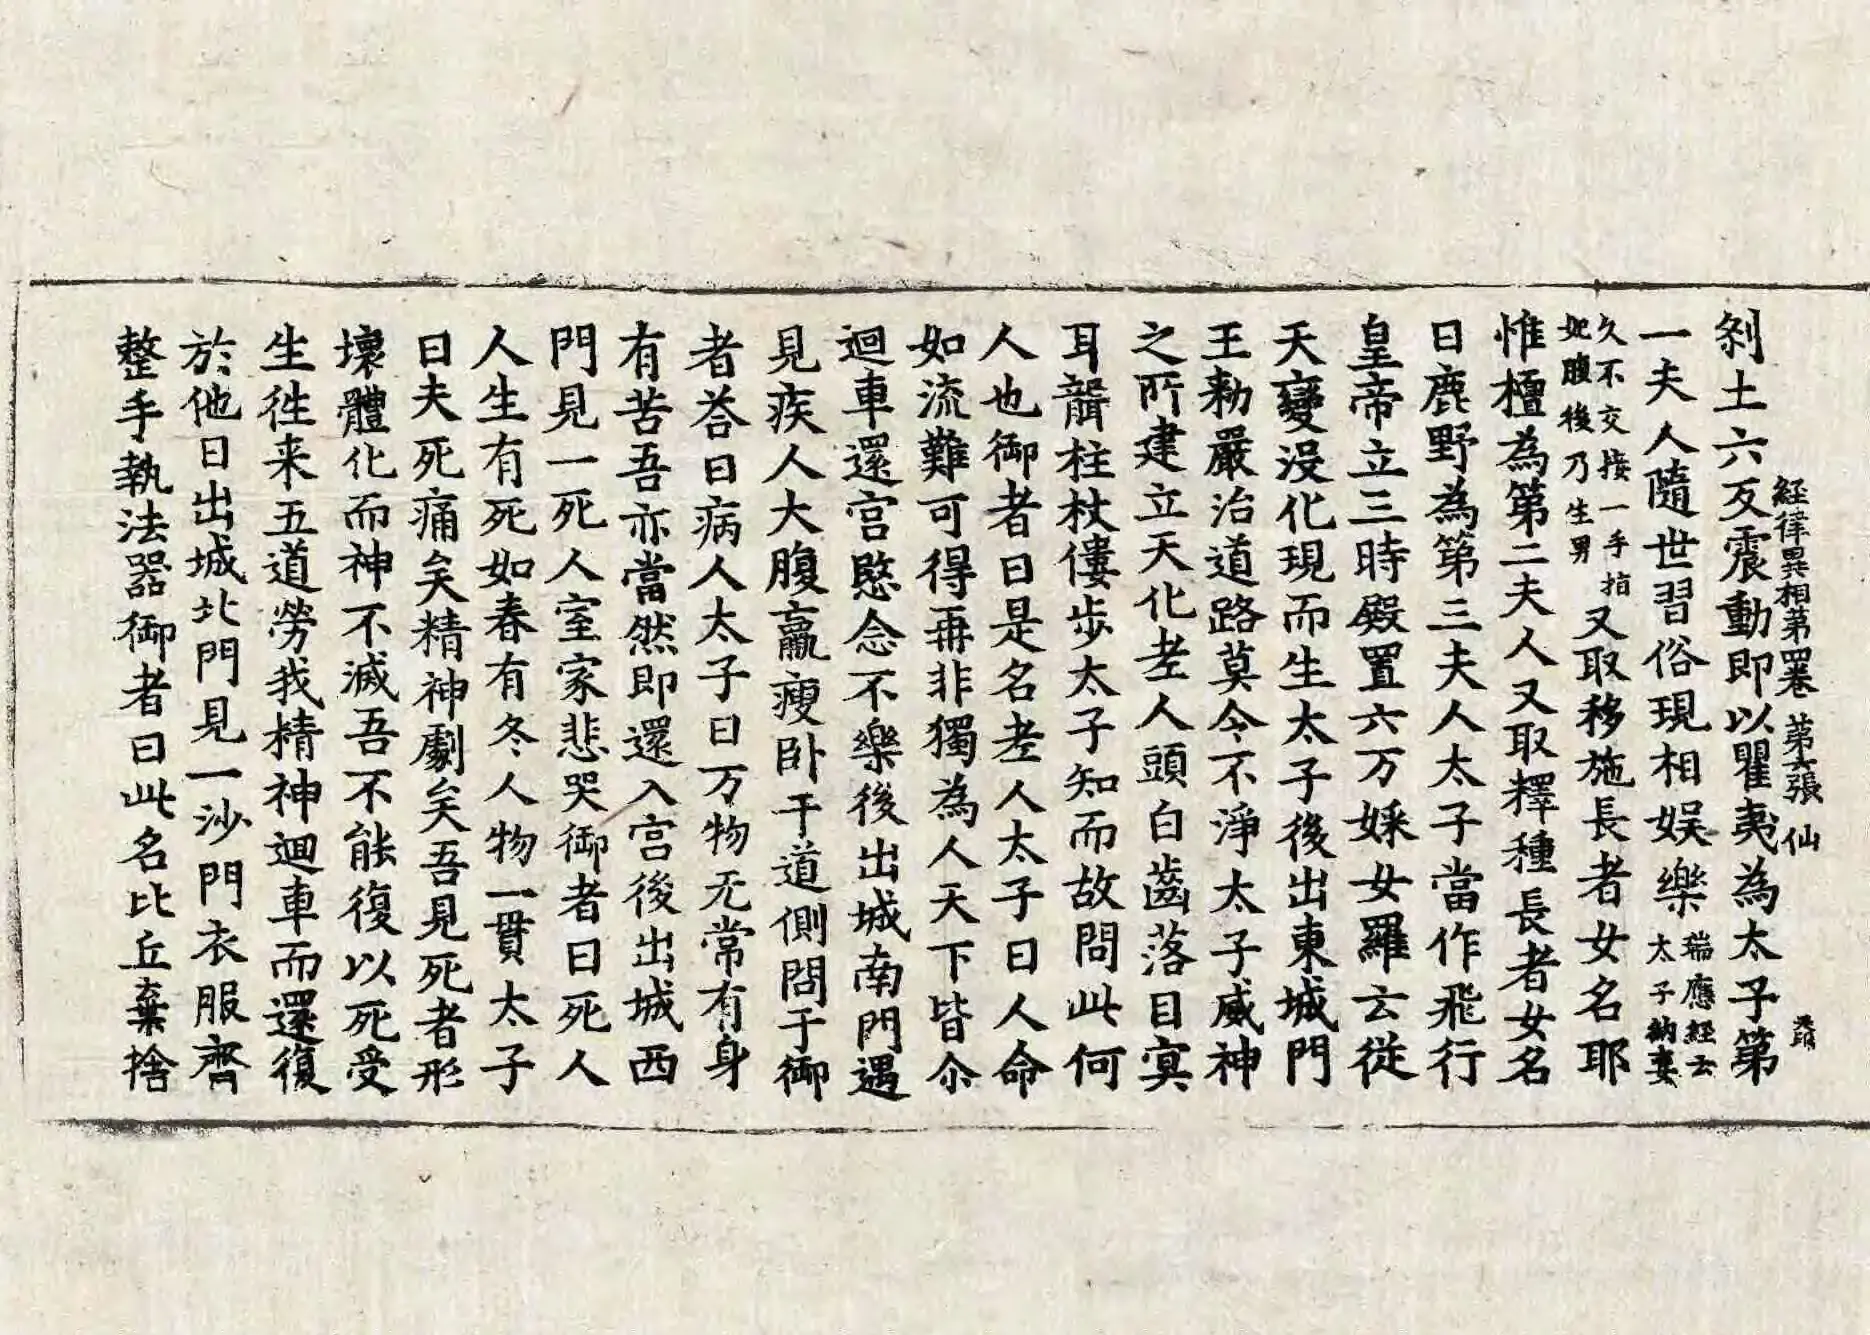 経律異相第四卷 第六張 仙
剎土六反震動即以瞿夷為太子第
一夫人隨世習俗現相娛樂瑞應経云
太子納妻
久不交接一手指
妃腹後乃生男
又取移施長者女名耶
惟檀為第二夫人又取釋種長者女名
曰鹿野為第三夫人太子當作飛行
皇帝立三時殿置六万婇女羅云從
天變沒化現而生太子後出東城門
王勑嚴治道路莫令不淨太子威神
之所建立天化老人頭白齒落目冥
耳聾柱杖僂步太子知而故問此何
人也御者曰是名老人太子曰人命
如流難可得再非獨為人天下皆尒
迴車還宮愍念不樂後出城南門遇
見疾人大腹羸瘦卧于道側問于御
者荅曰病人太子曰万物无常有身
有苦吾亦當然即還入宮後出城西
門見一死人室家悲哭御者曰死人
人生有死如春有冬人物一貫太子
曰夫死痛矣精神劇矣吾見死者形
壞體化而神不滅吾不能復以死受
生徃来五道勞我精神迴車而還復
於他日出城北門見一沙門衣服齊
整手執法器御者曰此名比丘棄捨